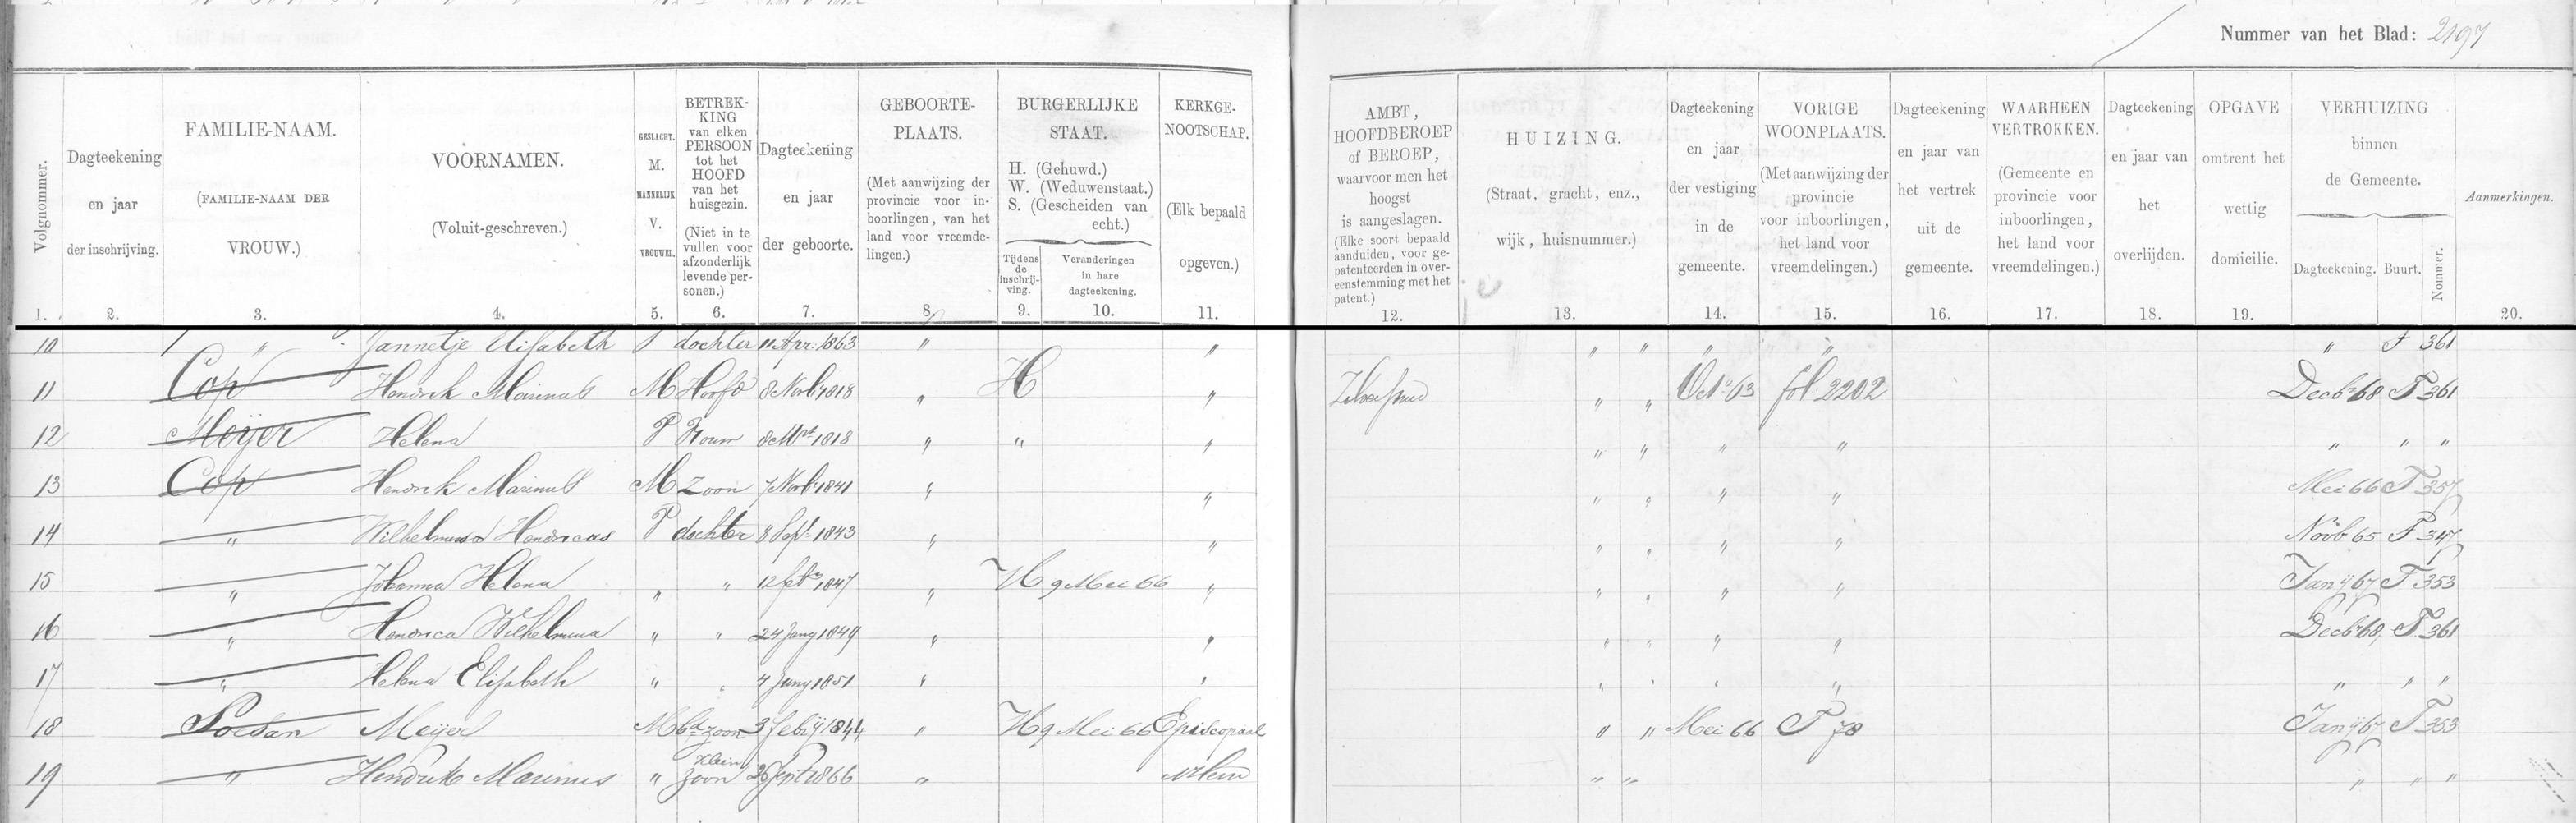 Nummer van het Blad: 2197
Volgnommer.
1.
Dagteekening
en jaar
der inschrijving.
2.
FAMILIE-NAAM.
(FAMILIE-NAAM DER
VROUW.)
3.
VOORNAMEN.
(Voluit-geschreven.)
4.
GESLACHT.
M.
MANNELIJK
V.
VROUWEL.
5.
BETREK-
KING
van elken
PERSOON
tot het
HOOFD
van het
huisgezin.
(Niet in te
vullen voor
afzonderlijk
levende per-
sonen.)
6.
Dagteekening
en jaar
der geboorte.
7.
GEBOORTE-
PLAATS.
(Met aanwijzing der
provincie voor in-
boorlingen, van het
land voor vreemde-
lingen.)
8.
BURGERLIJKE
STAAT.
H. (Gehuwd.)
W. (Weduwenstaat.)
S. (Gescheiden van
echt.)
Tijdens
de
inschrij-
ving.
9.
Veranderingen
in hare
dagteekening.
10.
KERKGE-
NOOTSCHAP.
(Elk bepaald
opgeven.)
11.
AMBT,
HOOFDBEROEP
of BEROEP,
waarvoor men het
hoogst
is aangeslagen.
(Elke soort bepaald
aanduiden, voor ge-
patenteerden in over-
eenstemming met het
patent.)
12.
HUIZING.
(Straat, gracht, enz.,
wijk, huisnummer.)
13.
Dagteekening
en jaar
der vestiging
in de
gemeente.
14.
VORIGE
WOONPLAATS.
(Met aanwijzing der
provincie
voor inboorlingen,
het land voor
vreemdelingen.)
15.
Dagteekening
en jaar van
het vertrek
uit de
gemeente.
16.
WAARHEEN
VERTROKKEN.
(Gemeente en
provincie voor
inboorlingen,
het land voor
vreemdelingen.)
17.
Dagteekening
en jaar van
het
overlijden.
18.
OPGAVE
omtrent het
wettig
domicilie.
19.
VERHUIZING
binnen
de Gemeente.
Dagteekening. Buurt. Nommer.
Aanmerkingen.
20.
10 " Jannetje Elisabeth dochter 11 Apr: 1863 " " " " " " " 361
11 Cop Hendrik Marinus M Hoofd 8 Novb 1818 " H " " " 63 fol 2202 Decbr 68 T 361
12 Meijer Helena Vrouw 8 Mrt 1818 " " " " " " " " " "
13 Cop Hendrik Marinus M Zoon 7 Novbr 1841 " " " " " " Mei 66 T 357
14 " dochter 8 Sept 1843 " " " " " " Novb 65 347
15 " Johanna Helena " " 12 feb 1847 " H 9 Mei 66 " " " " " Janij 67 T 353
16 " Hendrica Wilhelmina " " 24 Jany 1849 " " " " " " Decbr 68 T 361
17 " Helena Elisabeth " " 4 Juny 1851 " " " " " " " " "
18 Meijer M zoon 3 febrij 1844 " H 9 Mei 66 Episcopaal " " Mei 66 T 78 Janij 67 T 353
19 " Hendrik Marinus " Klein zoon 26 Sept 1866 " " " " " "